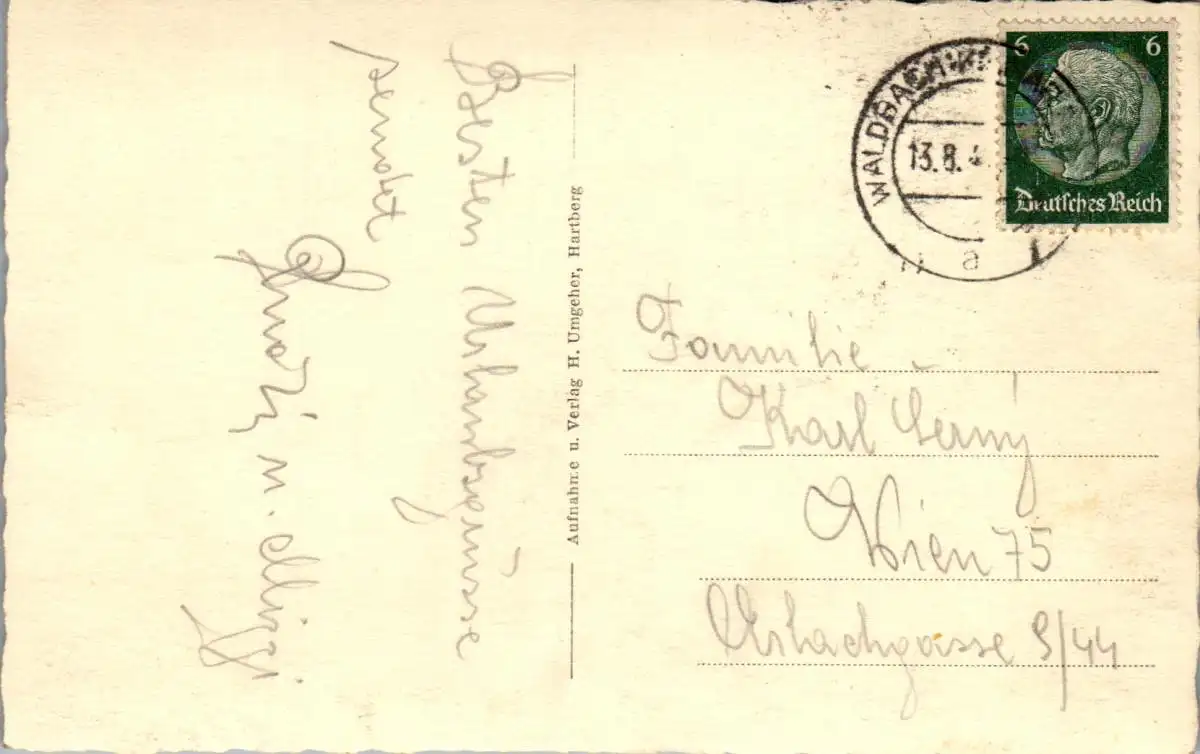 Besten Urlaubsgrüsse
sendet
u. Mizzi
Aufnahme u. Verlag H. Umgeher, Hartberg
6 6
Deutsches Reich
WALDBACH
13.8.4
a
Familie
Karl Černý
Wien 75
9/44